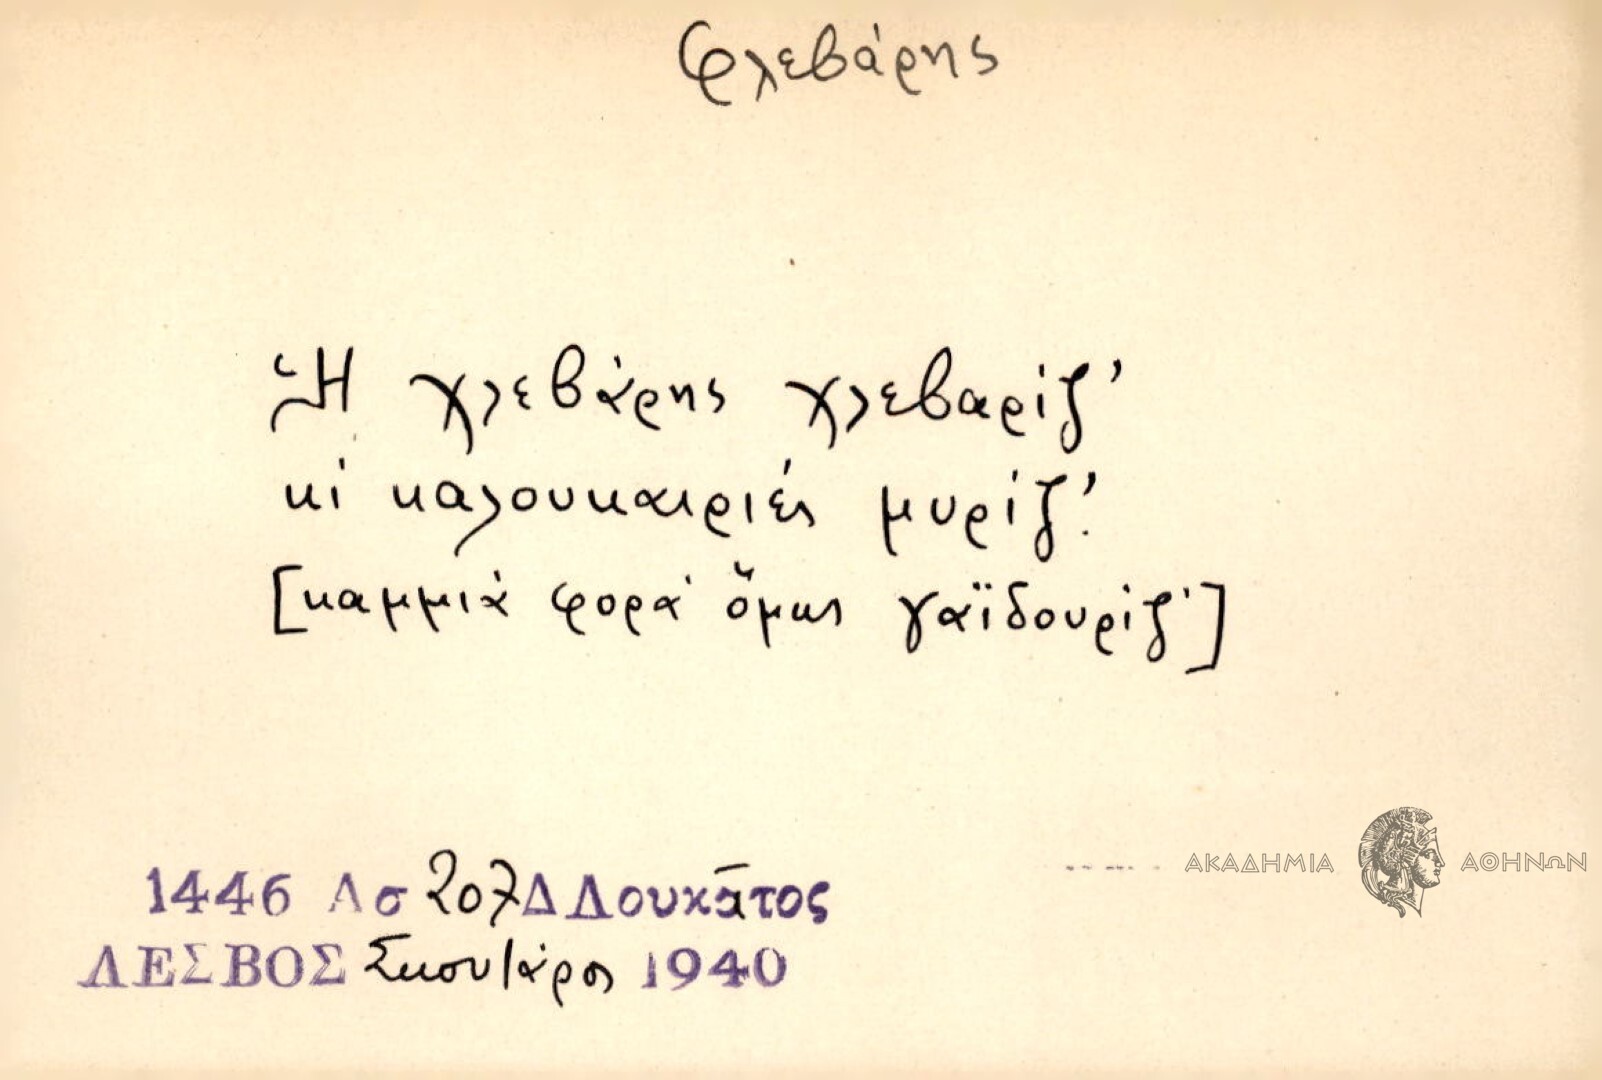 Φλεβάρης
Ἡ χλεβάρης χλεβαρίζ’
κὶ καλουκαιριές μυρίζ’.
[καμμιὰ φορά ὅμως γαϊδουρίζ’]
1446 Λσ 207 Δ Δουκᾶτος
ΛΕΣΒΟΣ Σκουτάρος 1940
ΑΚΑΔΗΜΙΑ ΑΘΗΝΩΝ